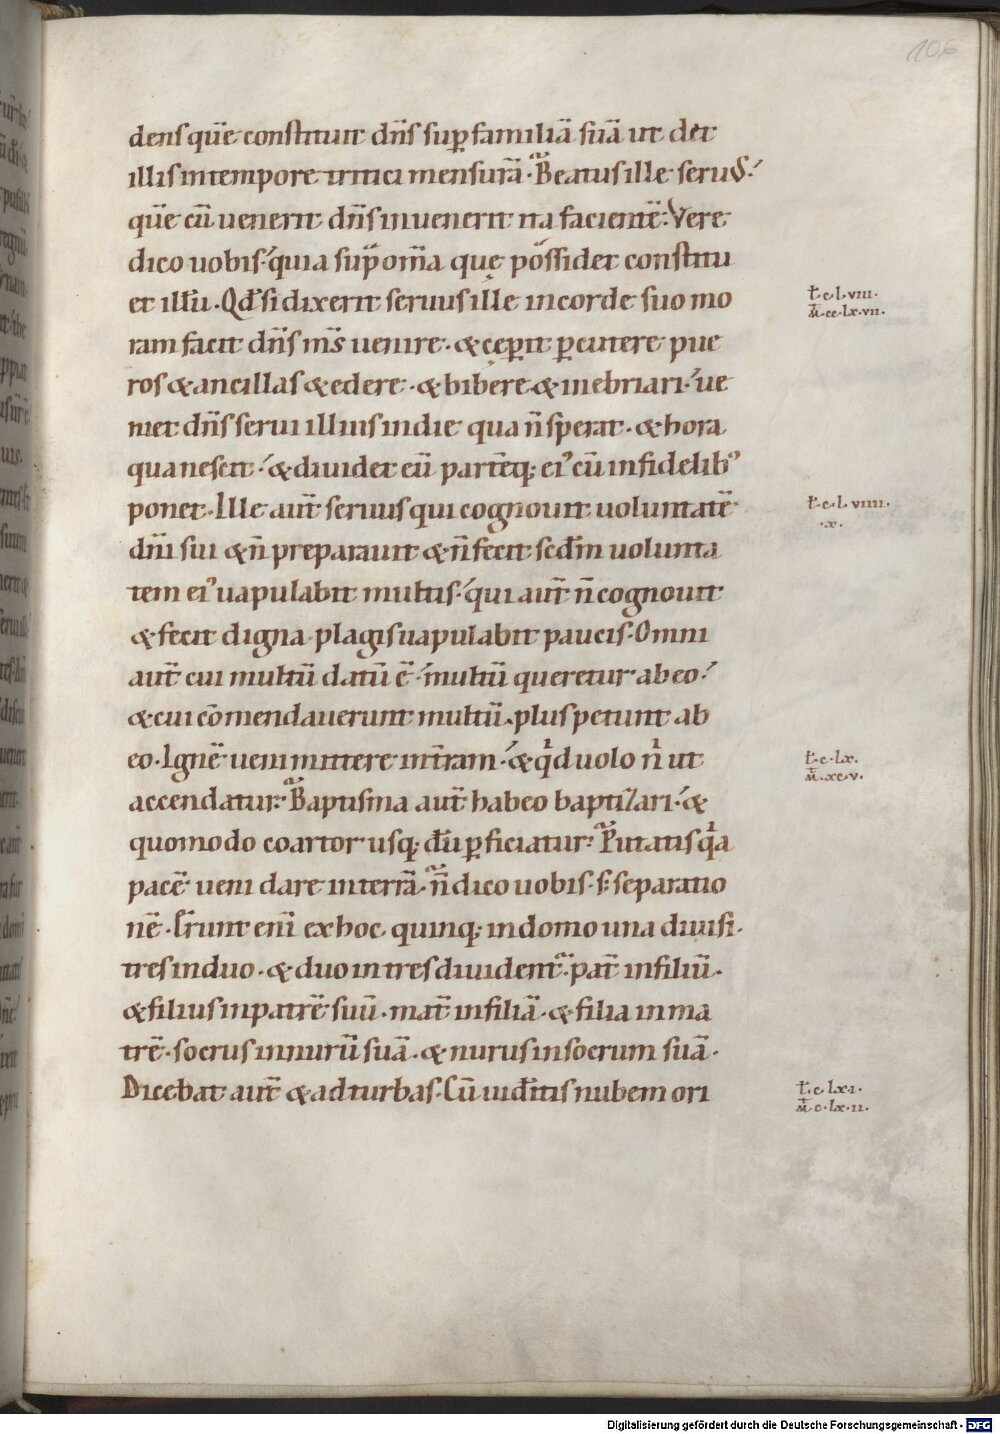 106
dens quē constituit dn̄s sup̄ familiā suā ut det
illis in tempore tritici mensurā. Beatus ille seruus.
quē cū uenerit dn̄s inuenerit ita facientē. Vere
dico uobis. quia sup̄ om̄a que possidet constitu
et illū. Qd̄ si dixerit seruus ille in corde suo mo
ram facit dn̄s m̄s uenire. & cęperit p̄cutere pue
ros & ancillas & edere. & bibere & inebriari. ue
niet dn̄s serui illius in die qua n̄ sperat. & hora
qua nescit. & diuidet eū partēq; eiꝰ cū infidelibꝰ
ponet. Ille aut̄ seruus qui cognouit uoluntatē
dn̄i sui & n̄ preparauit & n̄ fecit scdm̄ uolunta
tem eiꝰ uapulabit multis. qui aut̄ n̄ cognouit
& fecit digna plagis uapulabit paucis. Omni
aut̄ cui multū datū ē. multū queretur ab eo.
& cui cōmendauerunt multū. plus petunt ab
eo. Ignē ueni mittere in t̄ram. & qͥd uolo nͥ ut
accendatur. Baptisma aut̄ habeo baptizari. &
quomodo coartor usq; dū p̄ficiatur. Putatis qͥa
pacē ueni dare in terrā. n̄ dico uobis. s; separatio
nē. Erunt eni̅ ex hoc quinq; in domo una diuisi.
tres in duo. & duo in tres diuident̄. pat̄ in filiū.
& filius in patrē suū. mat̄ in filiā. & filia in ma
trē. socrus in nurū suā. & nurus in socrum suā.
Dicebat aut̄ & ad turbas. Cū uid̄itis nubem ori
ł. c. L. viii.
M̄. cc. Lx. vii.
ł. c. L. viiii.
.x.
ł. c. Lx.
M̄. xc. v.
ł. c. Lx. i.
M̄. c. Lx. ii.
Digitalisierung gefördert durch die Deutsche Forschungsgemeinschaft - DFG